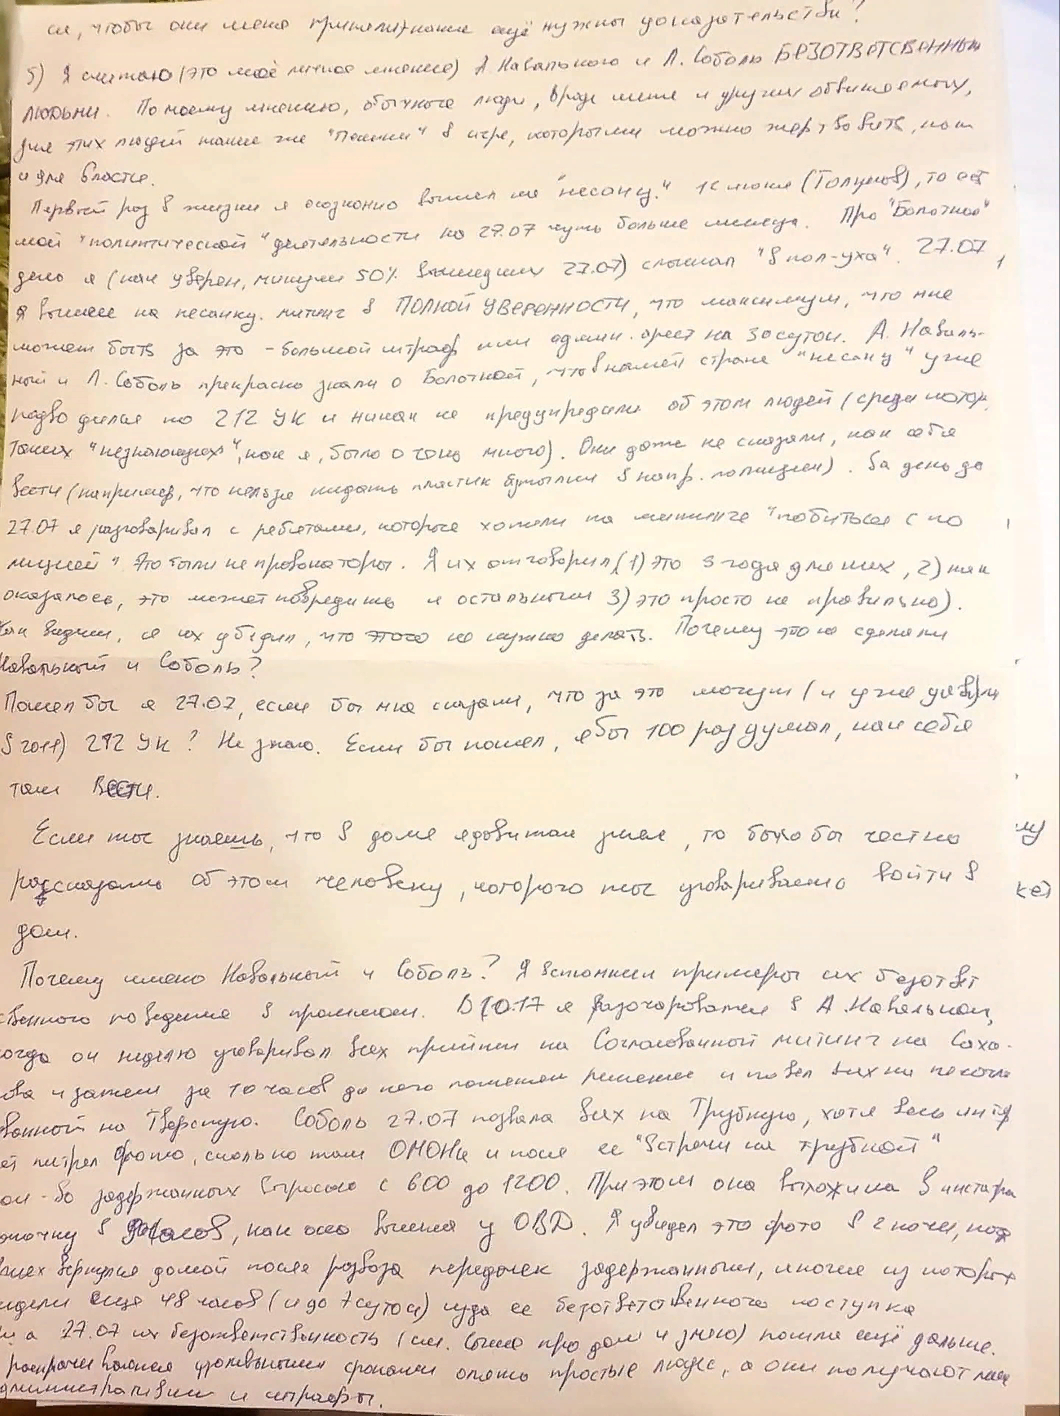 ся, чтобы они меня признали? какие ещё нужны доказательства?
5) Я считаю (это моё личное мнение) А Навального и Л. Соболь БЕЗОТВЕТСВЕННЫМИ
людьми. По моему мнению, обычные люди, вроде меня и других обвиняемых,
для этих людей такие же "Пешки" в игре, которыми можно жертвовать, как
и для власти.
Первый раз в жизни я осознанно вышел на "несанкц." 12 июня (Голунов), то есть
мой "политической" деятельности на 27.07 чуть больше месяца. Про "Болотное"
дело я (как уверен, минимум 50% вышедших 27.07) слышал "в пол-уха". 27.07
я вышел на несанкц. митинг в ПОЛНОЙ УВЕРЕННОСТИ, что максимум, что мне
может быть за это - большой штраф или админ. арест на 30 суток. А. Наваль-
ный и Л. Соболь прекрасно знали о Болотной, что в нашей стране "несанкц" уже
подводился по 212 УК и никак не предупредили об этом людей (среди котор.
таких "незнающих", как я, было очень много). Они даже не сказали, как себя
вести (например, что нельзя кидать пластик бутылки в напр. полиции). За день до
27.07 я разговаривал с ребятами, которые хотели на митинге "побиться с по
лицией". Это были не провокаторы. Я их отговорил (1) это 3 года для них, 2) как
оказалось, это может повредить и остальным 3) это просто не правильно).
Как видим, я их убедил, что этого не нужно делать. Почему это не сделали
Навальный и Соболь?
Пошел бы я 27.07, если бы мне сказали, что за это могут (и уже давали
в 2011) 212 УК? Не знаю. Если бы пошел, я бы 100 раз думал, как себя
там вести.
Если ты знаешь, что в доме ядовитая змея, то было бы честно
рассказать об этом человеку, которого ты уговариваешь войти в
дом.
Почему именно Навальный и Соболь? Я вспомнил примеры их безответ
ственного поведения в прошлом. В 10.17 я разочаровался в А. Навальном,
когда он неделю уговаривал всех прийти на Согласованный митинг на Саха-
рова и затем за 10 часов до него поменял решение и повел всех на несогла
сованной на Тверскую. Соболь 27.07 позвала всех на Трубную, хотя весь интер
нет пестрел фото, сколько там ОМОНа и после ее "Встречи на трубной"
кол-во задержанных выросло с 600 до 1200. При этом она выложила в инстаграм
фоточку в часов, как она вышла из ОВД. Я увидел это фото в 2 ночи, когда
вернулся домой после развоза передачек задержанным, многие из которых
сидели еще 48 часов (и до 7 суток) из-за ее безответственного поступка
27.07 их безответственность (см. выше про дом и змею) пошла ещё дальше.
уголовными сроками опять простые люди, а они получают лишь
административки и штрафы.